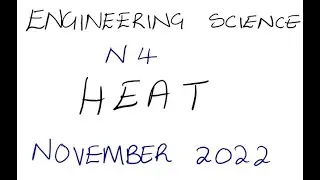 ENGINEERING SCIENCE
N4
HEAT
NOVEMBER 2022